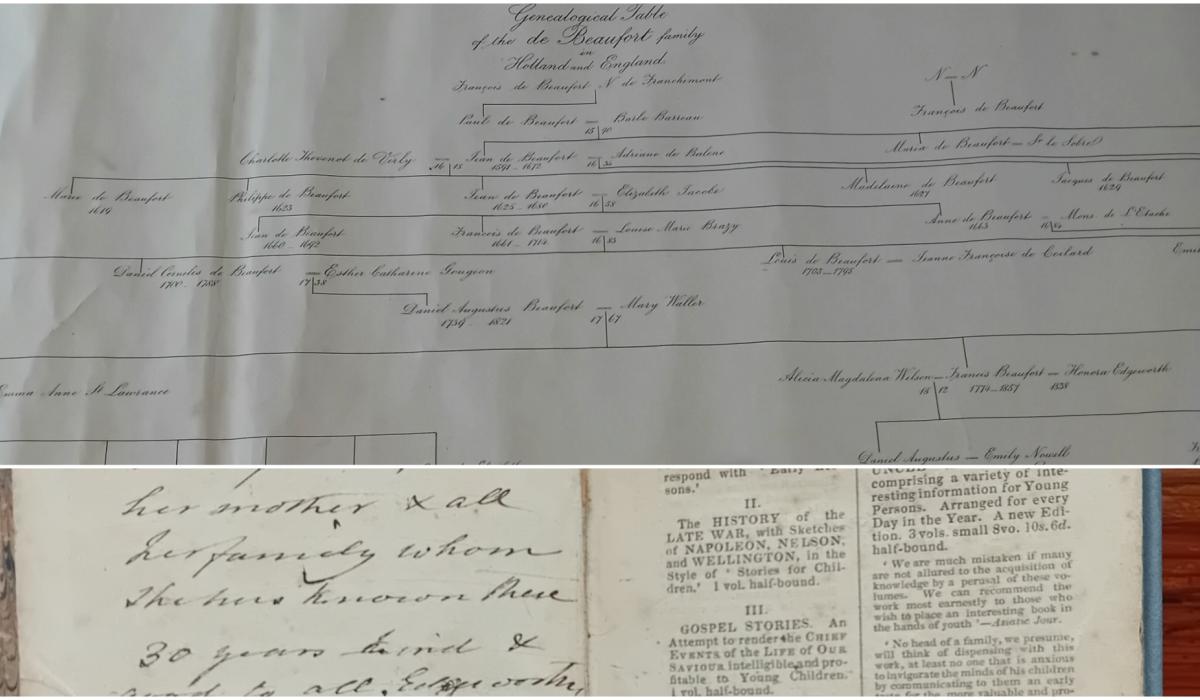 Genealogical Table
of the de Beaufort family
in
Holland and England.
François de Beaufort N de Franchimont
N — N
François de Beaufort
Paul de Beaufort — Barbe Barreau
15 90
Maria de Beaufort — Sr le Sobre
Charlotte Thevenot de Virly — Jean de Beaufort — Adriane de Balene
16 18 1591 – 1672 16 35
Marie de Beaufort Philippe de Beaufort Jean de Beaufort — Elizabeth Jacobe Madelaine de Beaufort Jacques de Beaufort
1619 1623 1625 – 1680 16 58 1627 1629
Jean de Beaufort François de Beaufort — Louise Marie Brazy Anne de Beaufort — Mons. de L'Etache
1660 – 1692 1661 – 1714 16 85 1663 16 84
Daniel Cornelis de Beaufort — Esther Catharene Gougeon Louis de Beaufort — Jeanne Françoise de Coilard Emi
1700 – 1788 17 38 1703–1795
Daniel Augustus Beaufort — Mary Waller
1739 – 1821 17 67
Emma Anne St Lawrance Alicia Magdalena Wilson — Francis Beaufort — Honora Edgeworth
18 12 1774–1857 1838
Daniel Augustus — Emily Nowell
her mother & all
her family whom
She has known these
30 years kind &
good to all Edgeworths
respond with 'Early Les-
sons.'
II.
The HISTORY of the
LATE WAR, with Sketches
of NAPOLEON, NELSON,
and WELLINGTON, in the
Style of 'Stories for Chil-
dren.' 1 vol. half-bound.
III.
GOSPEL STORIES. An
Attempt to render the CHIEF
EVENTS of the LIFE of OUR
SAVIOUR intelligible and pro-
fitable to Young Children.
1 vol. half-bound.
UNCLE
comprising a variety of inte-
resting information for Young
Persons. Arranged for every
Day in the Year. A new Edi-
tion. 3 vols. small 8vo. 10s. 6d.
half-bound.
'We are much mistaken if many
are not allured to the acquisition of
knowledge by a perusal of these vo-
lumes. We can recommend the
work most earnestly to those who
wish to place an interesting book in
the hands of youth'—Asiatic Jour.
'No head of a family, we presume,
will think of dispensing with this
work, at least no one that is anxious
to invigorate the minds of his children
by communicating to them an early
taste for the more valuable and pro-